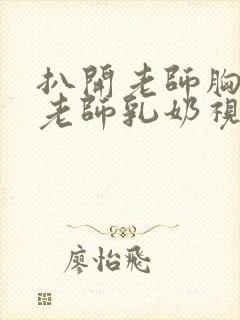 扒開老師胸
老師乳奶視
廖怡飛